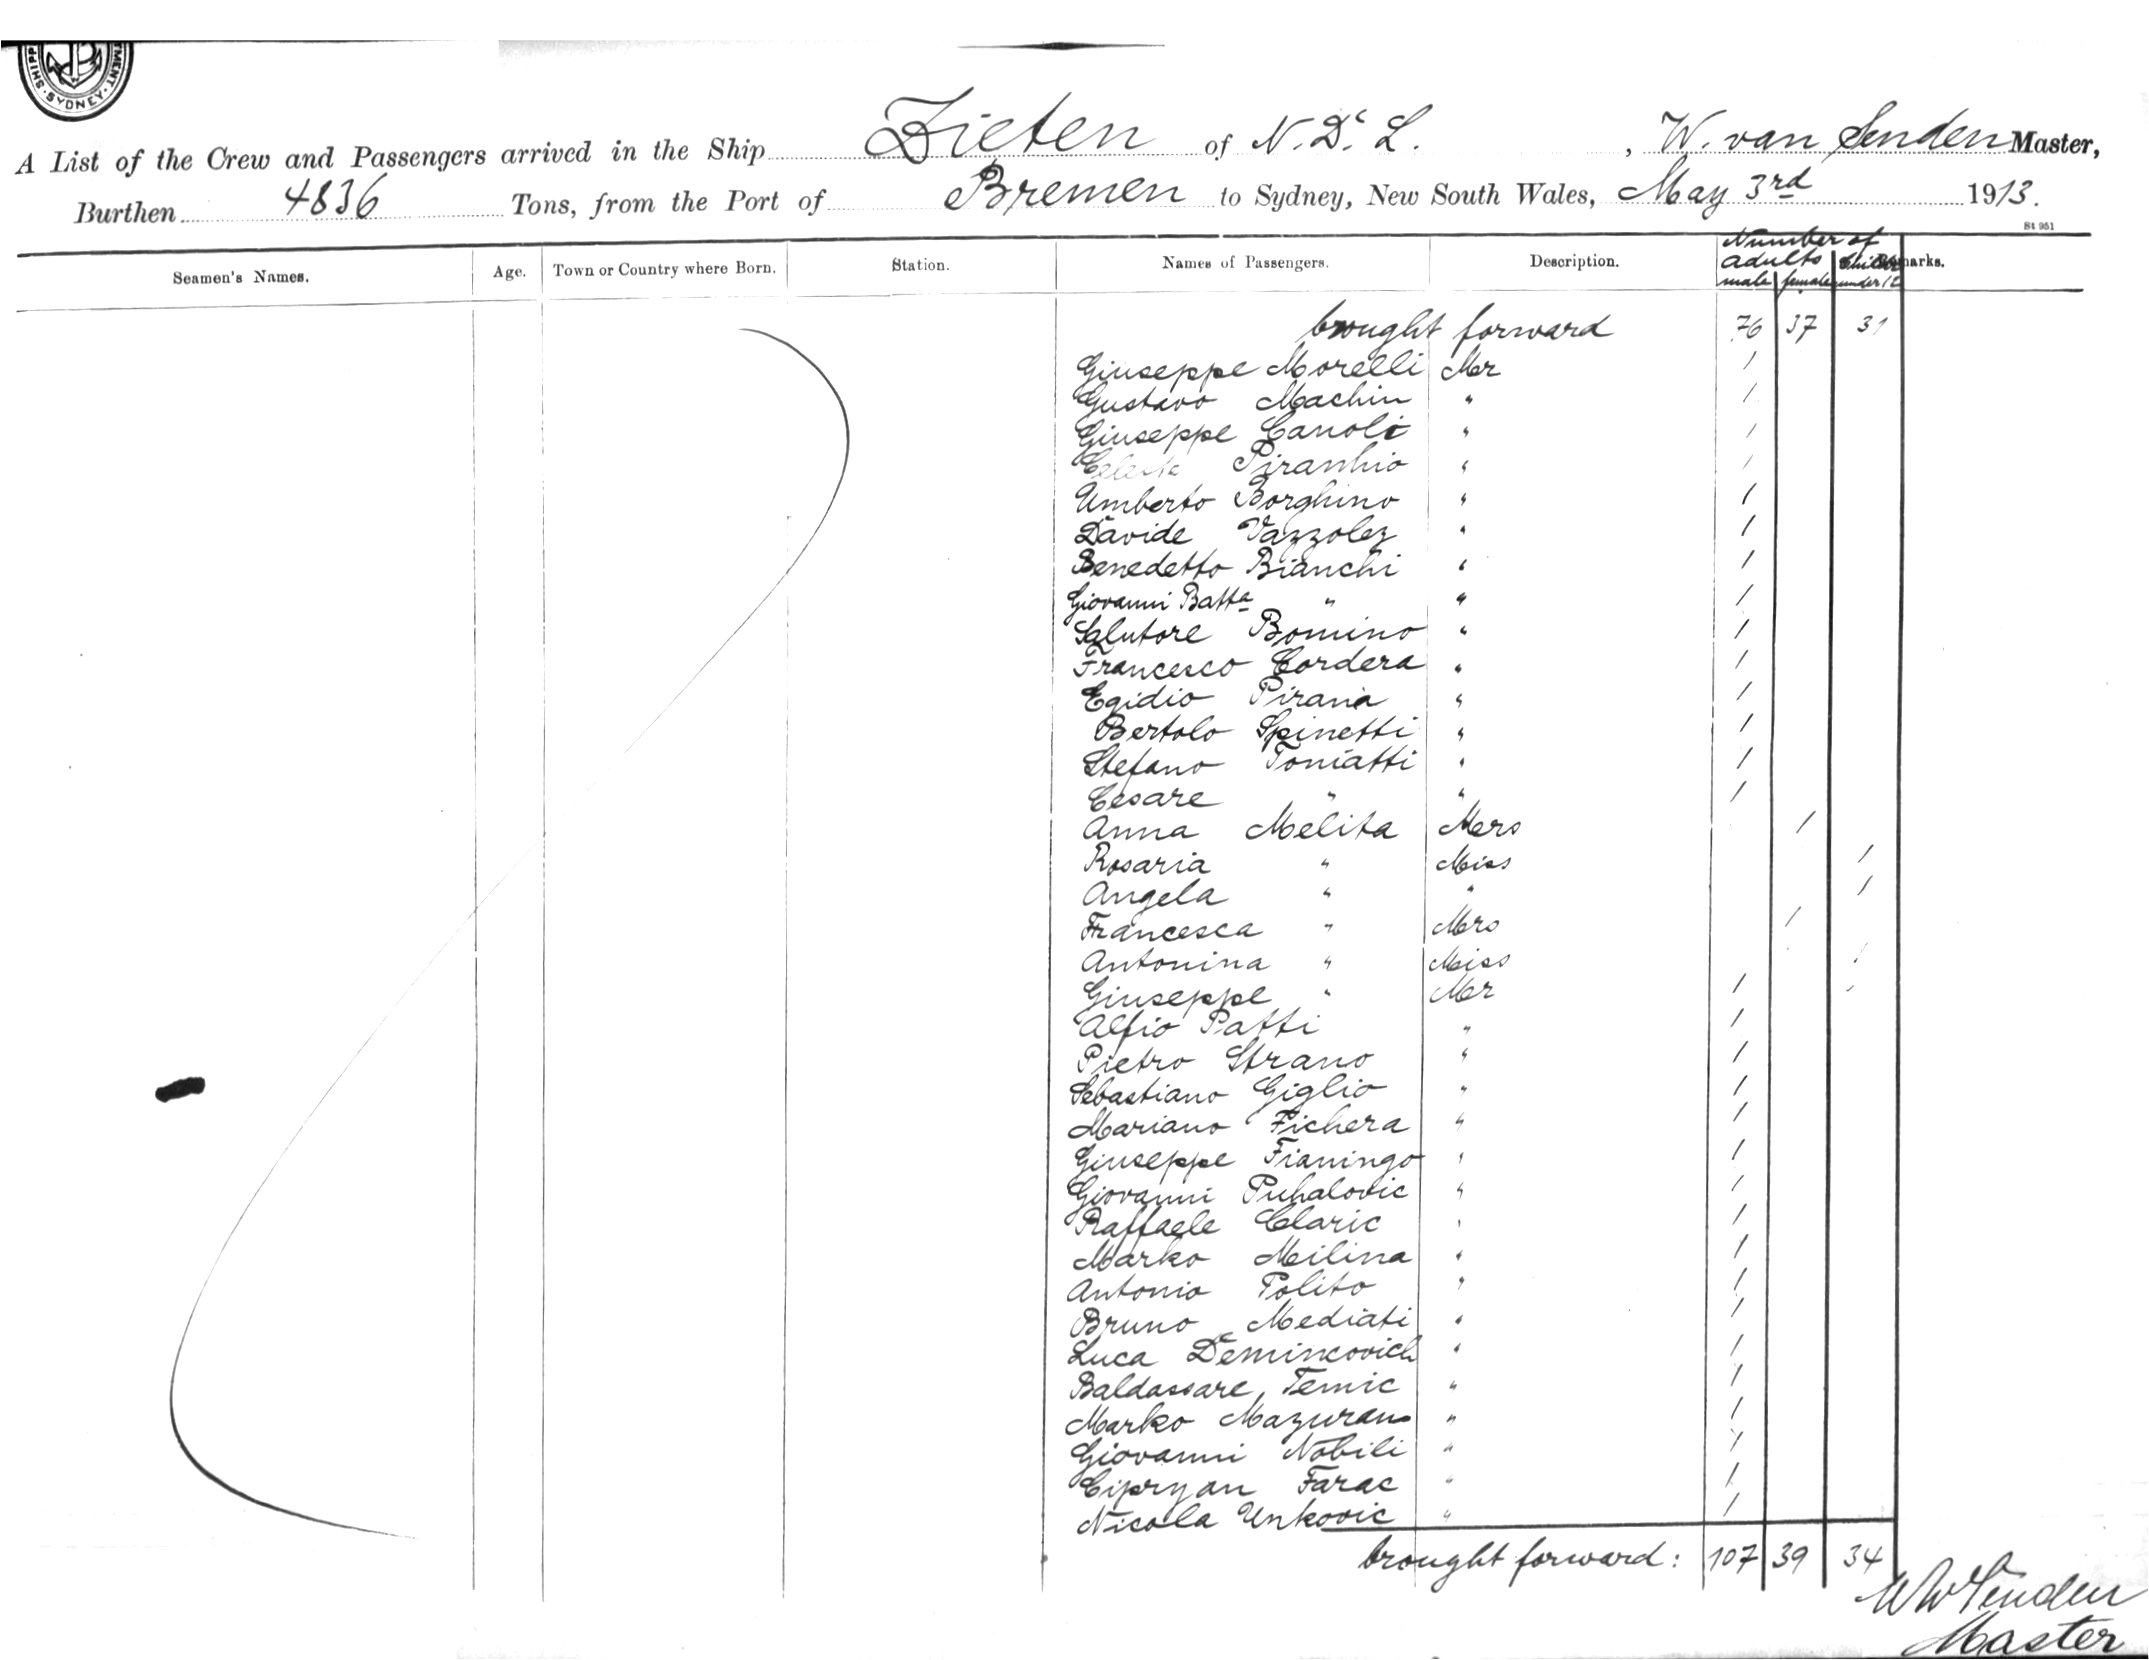 SHIPP MENT. SYDNEY.
A List of the Crew and Passengers arrived in the Ship Zieten of N. D. L., W. van Senden Master,
Burthen 4836 Tons, from the Port of Bremen to Sydney, New South Wales, May 3rd 1913.
St 951
Seamen's Names. Age. Town or Country where Born. Station. Names of Passengers. Description. Number of adults male female under 12 Remarks.
brought forward 76 37 31
Giuseppe Morelli Mr 1
Gustavo Machin " 1
Giuseppe Canoli " 1
Celeste Piranhio " 1
Umberto Borghino " 1
Davide Vazzolez " 1
Benedetto Bianchi " 1
Giovanni Batta " " 1
Salutore Bomino " 1
Francesco Cordera " 1
Egidio Pirania " 1
Bertolo Spinetti " 1
Stefano Toniatti " 1
Cesare " " 1
Anna Melita Mrs 1
Rosaria " Miss 1
Angela " " 1
Francesca " Mrs 1
Antonina " Miss 1
Giuseppe " Mr 1
Alfio Patti " 1
Pietro Strano " 1
Sebastiano Giglio " 1
Mariano Fichera " 1
Giuseppe Fianingo " 1
Giovanni Puhalovic " 1
Raffaele Claric " 1
Marko Milina " 1
Antonio Polito " 1
Bruno Mediati " 1
Luca Demincovich " 1
Baldassare Temic " 1
Marko Mazuran " 1
Giovanni Nobili " 1
Cipryan Farac " 1
Nicola Unkovic " 1
brought forward: 107 39 34
W v Senden
Master